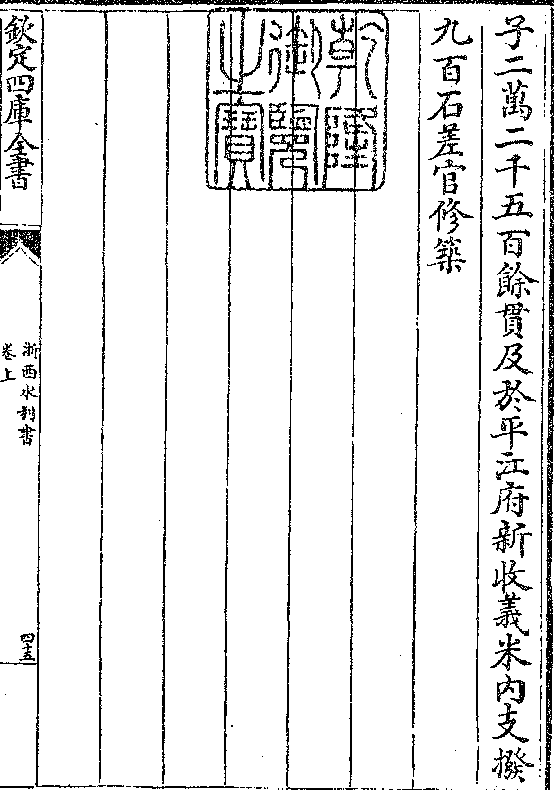 子二萬二千五百餘貫及於平江府新收義米内支撥
九百石差官修築
乾隆
御覽
之寶
欽定四庫全書
浙西水利書
卷上
四十五